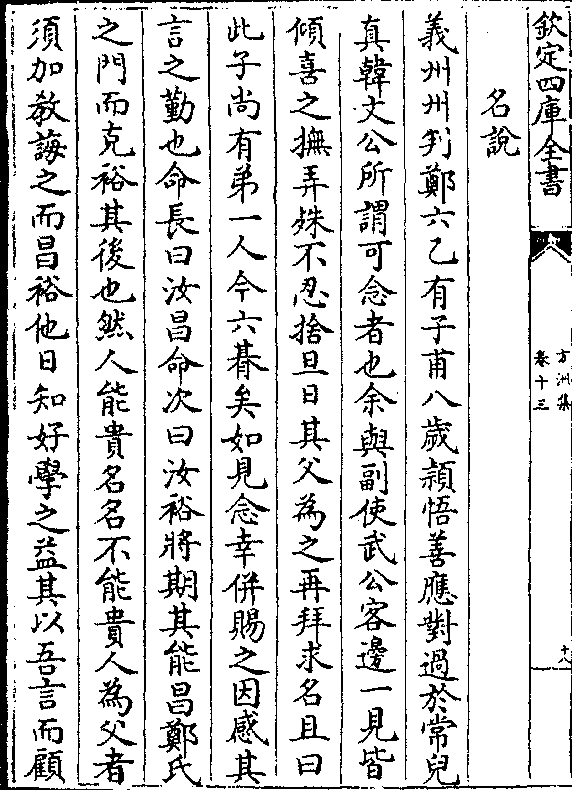 欽定四庫全書
方洲集
卷十三
十八
名說
義州州判鄭六乙有子甫八歲頴悟善應對過於常兒
真韓文公所謂可念者也余與副使武公客邊一見皆
傾喜之撫弄殊不忍捨旦日其父為之再拜求名且曰
此子尚有弟一人今六朞矣如見念幸併賜之因感其
言之勤也命長曰汝昌命次曰汝裕將期其能昌鄭氏
之門而克裕其後也然人能貴名名不能貴人為父者
須加教誨之而昌裕他日知好學之益其以吾言而顧